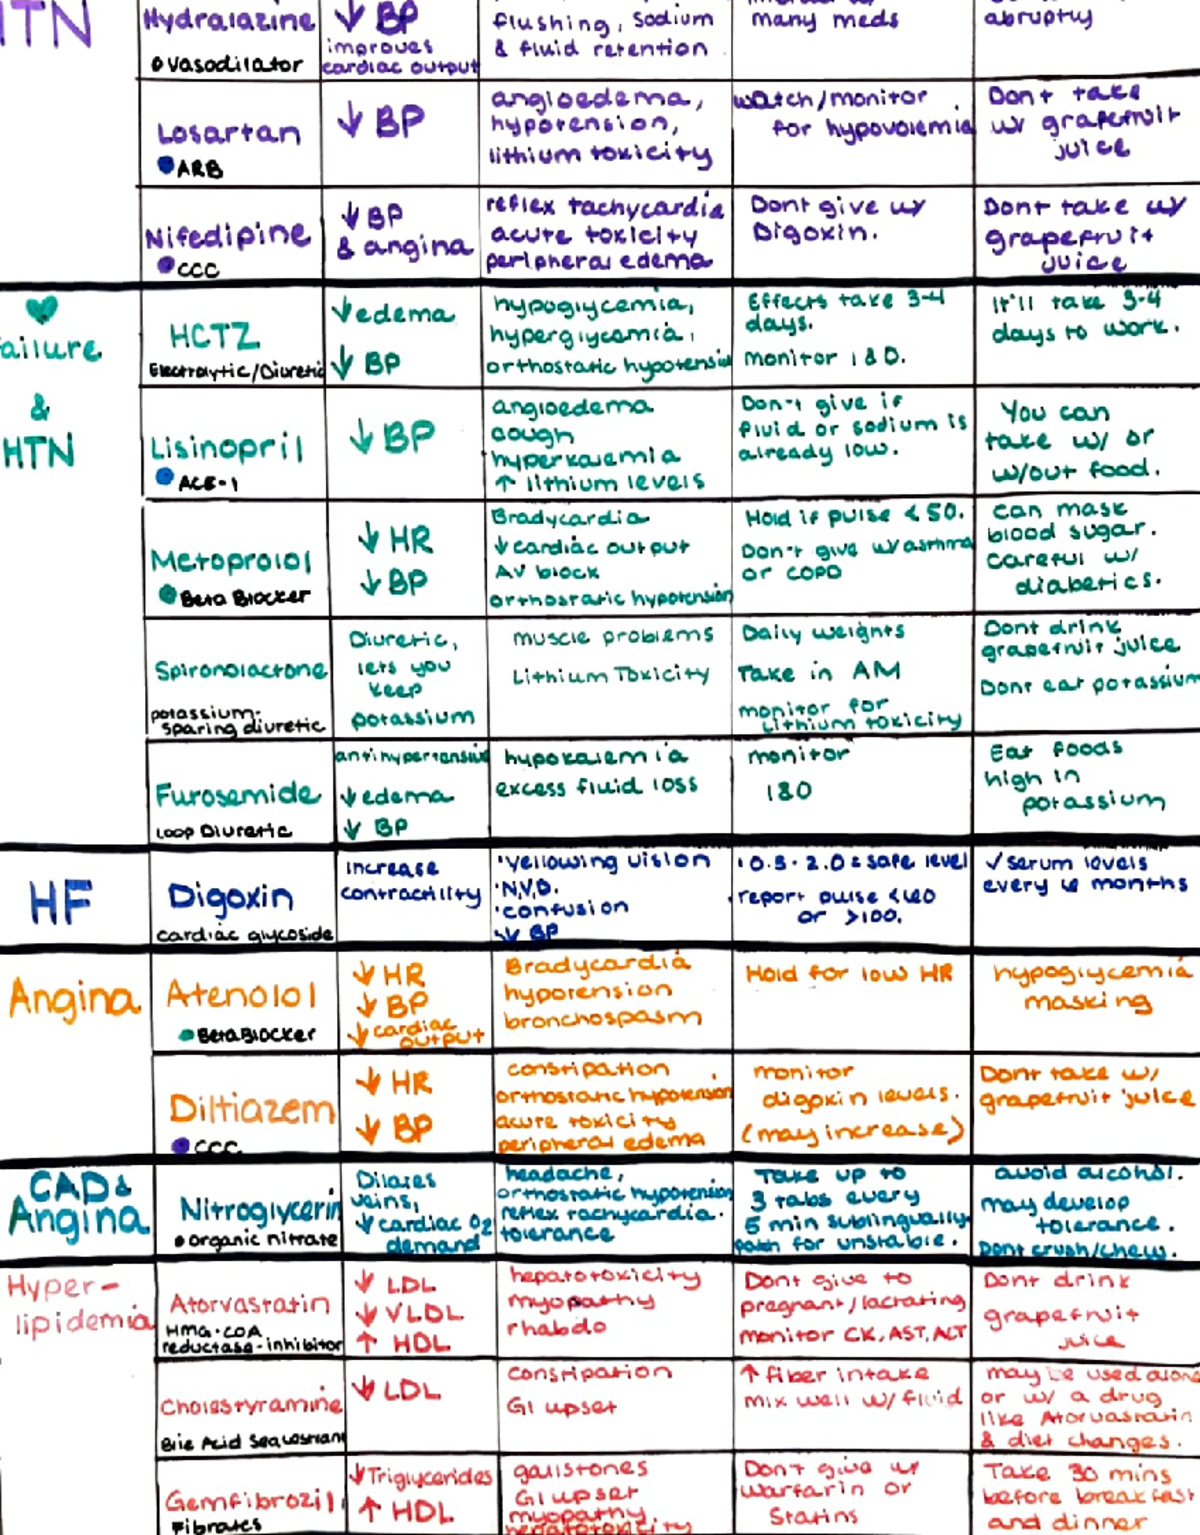 HTN
Hydralazine
Vasodilator
↓ BP
improves
cardiac output
flushing, sodium
& fluid retention
many meds
abruptly
Losartan
ARB
↓ BP
angioedema,
hypotension,
lithium toxicity
watch/monitor
for hypovolemia
Don't take
w/ grapefruit
juice
Nifedipine
CCC
↓ BP
& angina
reflex tachycardia
acute toxicity
peripheral edema
Dont give w/
Digoxin.
Dont take w/
grapefruit
juice
♥
Failure
&
HTN
HCTZ
Electrolytic/Diuretic
↓ edema
↓ BP
hypoglycemia,
hyperglycamia,
orthostatic hypotension
Effects take 3-4
days.
monitor I&O.
It'll take 3-4
days to work.
Lisinopril
ACE-I
↓ BP
angioedema
cough
hyperkalemia
↑ lithium levels
Don't give if
fluid or sodium is
already low.
You can
take w/ or
w/out food.
Metoprolol
Beta Blocker
↓ HR
↓ BP
Bradycardia
↓ cardiac output
AV block
orthostatic hypotension
Hold if pulse < 50.
Don't give w/asthma
or COPD
can mask
blood sugar.
careful w/
diabetics.
Spironolactone
potassium-
sparing diuretic
Diuretic,
lets you
keep
potassium
muscle problems
Lithium Toxicity
Daily weights
Take in AM
monitor for
Lithium toxicity
Dont drink
grapefruit juice
Dont eat potassium
Furosemide
Loop Diuretic
antihypertensive
↓ edema
↓ BP
hypokalemia
excess fluid loss
monitor
I&O
Eat foods
high in
potassium
HF
Digoxin
cardiac glycoside
increase
contractility
·yellowing vision
·N,V,D.
·confusion
↓ BP
·0.5-2.0 = safe level
report pulse <60
or >100.
✓ serum levels
every 6 months
Angina
Atenolol
Beta Blocker
↓ HR
↓ BP
↓ cardiac
output
Bradycardia
hypotension
bronchospasm
Hold for low HR
hypoglycemia
masking
Diltiazem
CCC
↓ HR
↓ BP
constipation
orthostatic hypotension
acute toxicity
peripheral edema
monitor
digoxin levels.
(may increase)
Dont take w/
grapefruit juice
CAD &
Angina
Nitroglycerin
organic nitrate
Dilates
veins,
↓ cardiac O2
demand
headache,
orthostatic hypotension
reflex tachycardia.
tolerance
Take up to
3 tabs every
5 min sublingually.
patch for unstable.
avoid alcohol.
may develop
tolerance.
Dont crush/chew.
Hyper-
lipidemia
Atorvastatin
HMG-COA
reductase-inhibitor
↓ LDL
↓ VLDL
↑ HDL
hepatotoxicity
myopathy
rhabdo
Dont give to
pregnant/lactating
monitor CK, AST, ALT
Dont drink
grapefruit
juice
Cholestyramine
Bile Acid
↓ LDL
constipation
GI upset
↑ fiber intake
mix well w/ fluid
may be used alone
or w/ a drug
like Atorvastatin
& diet changes.
Gemfibrozil
Fibrates
↓ Triglycerides
↑ HDL
gallstones
GI upset
myopathy
hepatotoxicity
Don't give w/
warfarin or
Statins
Take 30 mins
before breakfast
and dinner